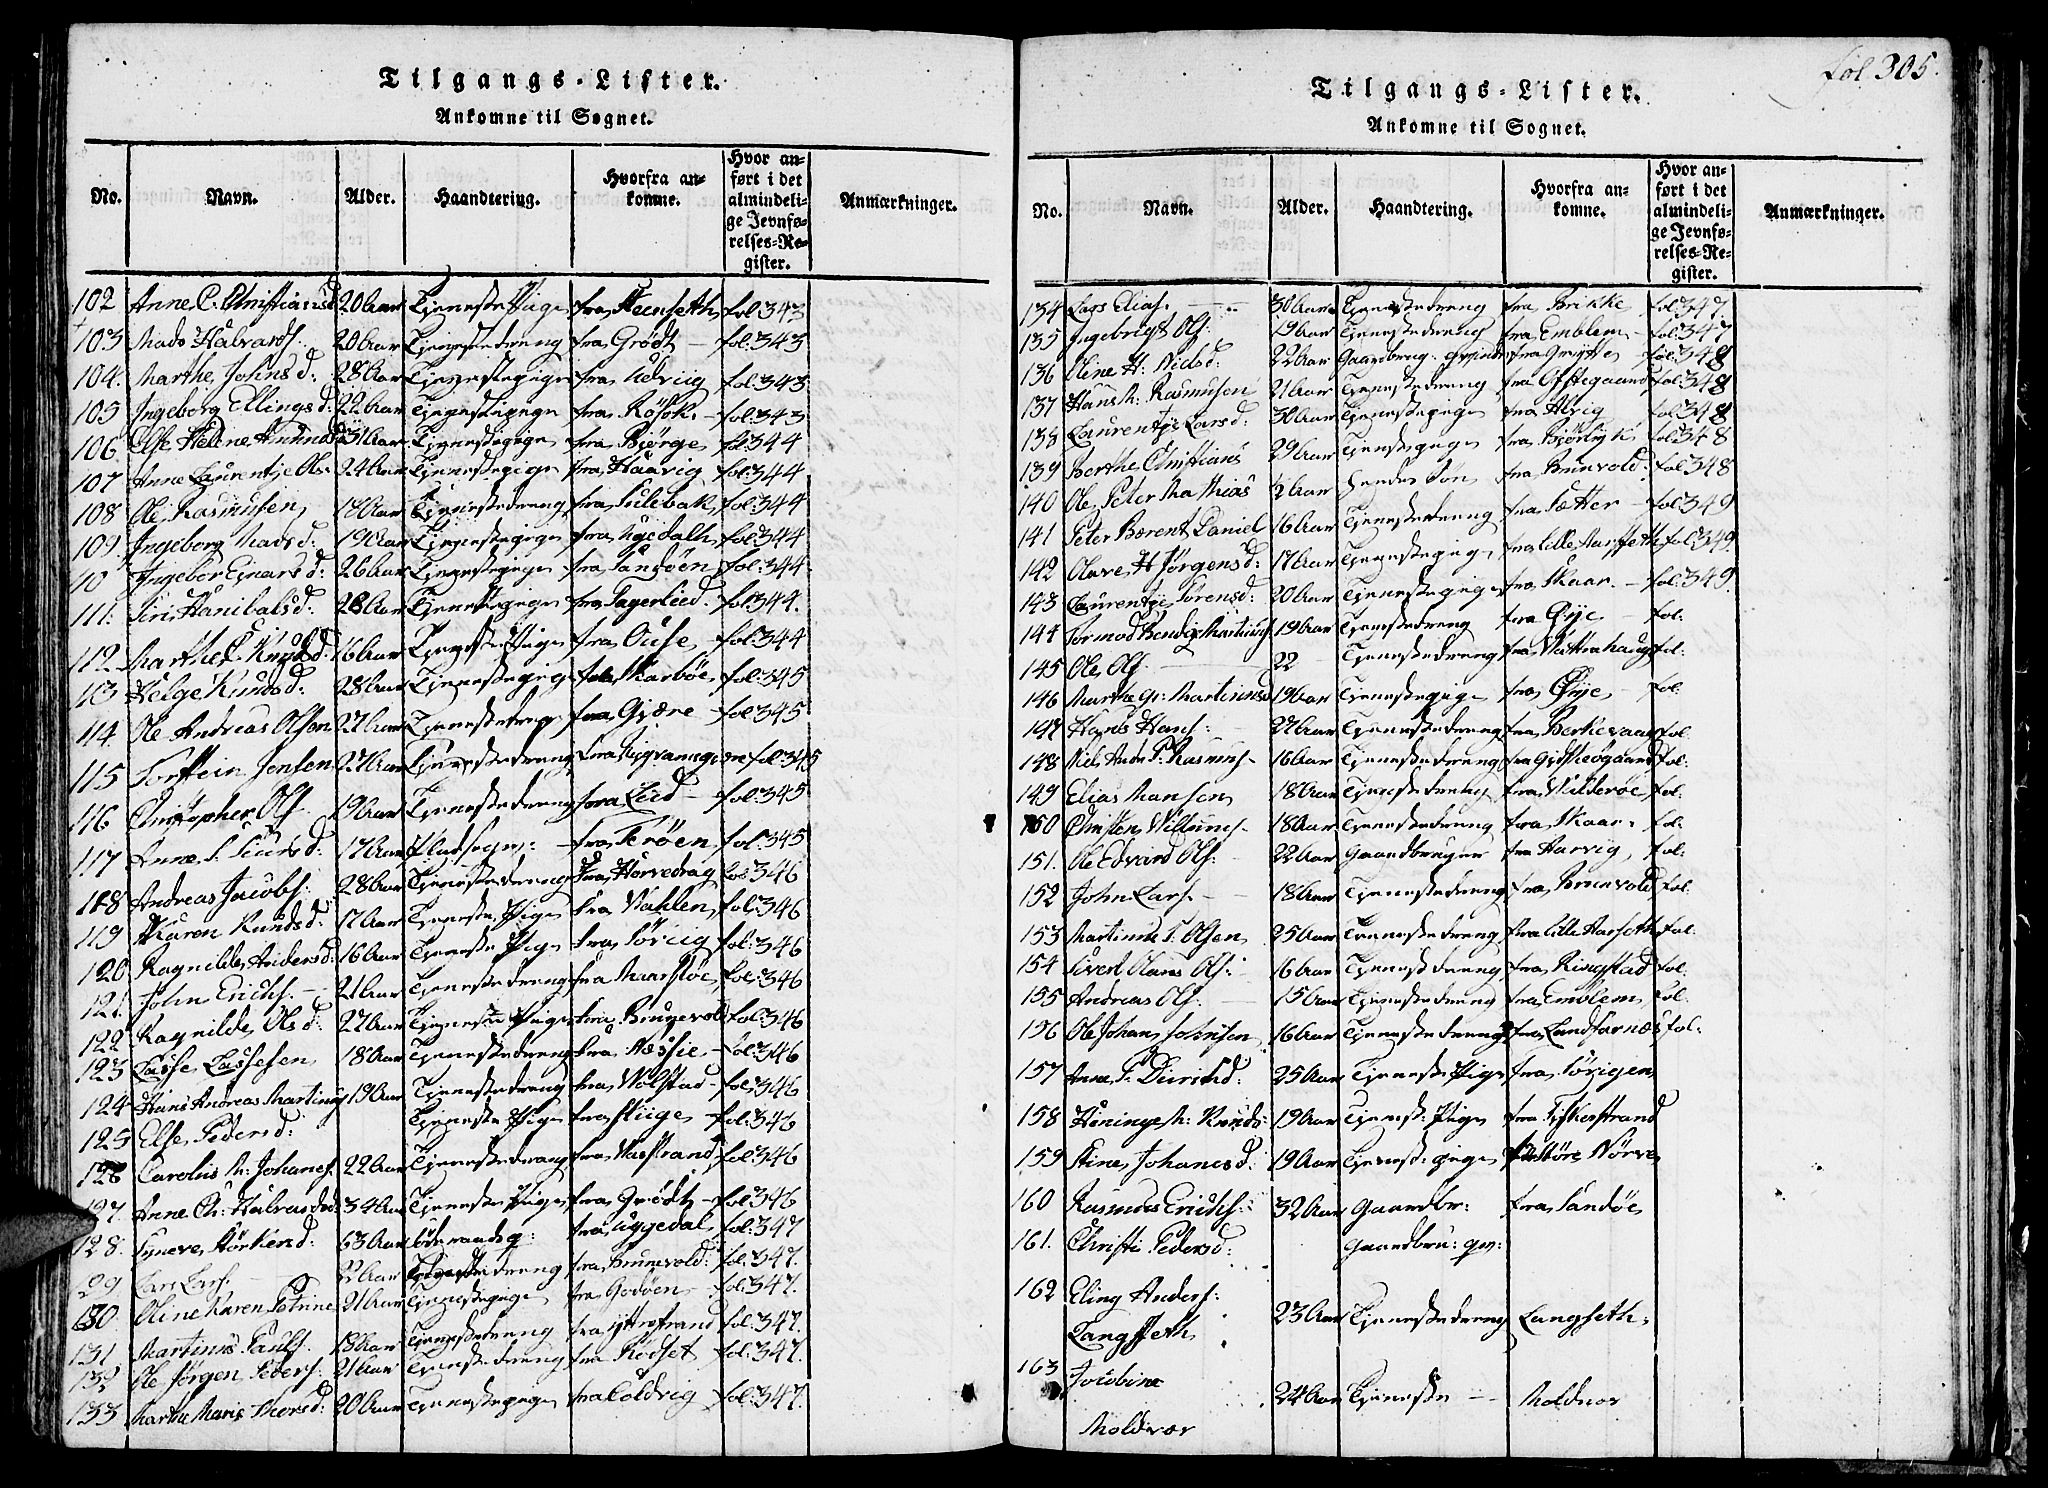 Tilgangs-Lister.
Ankomne til Sognet.
No. Navn. Alder. Haandtering. Hvorfra ankomne. Hvor anført i det almindelige Jevnførelses-Register. Anmærkninger.
102 Anne C. Christiansd 20 Aar Tjeneste Pige fra fol 343
103 Mads Halvards. 20 Aar Tjenestedreng fra Grödt – fol: 343
104. Marthe Johnsd: 28 Aar Tjenestepige fra Udviig fol: 343
105 Ingeborg Ellingsd: 22 Aar Tjenestepige fra Rösok. – fol: 343
106 Else Helene Amundsd 31 Aar Tjenestepige fra Bjørge fol 344
107 Anne Laurentje Ols: 24 Aar Tjenestepige fra Haavig fol: 344
108 Ole Rasmussen 17 Aar Tjenestedreng fra Sulebak fol: 344
109. Ingeborg Madsd: 19 Aar Tjenestepige fra Ugedalh fol: 344
10 Ingebor Ejnarsd: 26 Aar Tjenestepige fra Sandöen fol: 344
111: Siri Hanibalsd: 28 Aar Tjenestepige fra Fagerlied. fol. 344.
112 Marthe Knudsd: 16 Aar Tjeneste Pige fra Ouse fol: 344
113 Helge Knudsd: 28 Aar Tjenestepige fra Skarböe fol: 345
114. Ole Andreas Olsen 27 Aar Tjenestedreng fra Gjære – fol 345
115 Torstein Jensen 27 Aar Tjenestedreng fra fol: 345
116 Christopher Ols. 19 Aar Tjenestedreng fra Lied – fol: 345
117 Anne S. Siursd: 17 Aar fra Fröen fol: 345
118 Andreas Jacobs: 28 Aar Tjenestedreng fra Horvedrag fol 346
119 Karen Knudsd: 17 Aar Tjeneste Pige fra Vahlen fol. 346
120 Ragnilde Andersd: 16 Aar Tjeneste Pige fra Sörvig fol: 346
121. John Erichs. – 21 Aar Tjenestedreng fra Maaslöe fol. 346
122 Ragnilde Olsd: 27 Aar Tjeneste Pige fra Brunevold fol. 346
123 Lasse Lassesen 18 Aar Tjenestedreng fra Næssie – fol: 346
124 Hans Andreas Martinus 19 Aar Tjenestedreng fra Wolstad – fol 346
125 Else Pedersd: Tjeneste Pige fra fol: 346
126 Carolus M: Johanes. 22 Aar Tjenestedreng fra Vasstrand fol: 346
127. Anne Ch: Halvardsd 34 Aar Tjeneste Pige fra Grödt – fol: 346
128. Synneve Störkersd: 63 Aar fra Uggedal fol: 347
129 Lars Lars. – 22 Aar Tjenestedreng fra Brunevold: fol: 347.
130 Oline Karen Petrine 21 Aar Tjenestepige fra Godöen fol: 347.
131 Martinus Pauls. 18 Aar Tjenestedreng fra fol: 347.
132 Ole Jörgen Peders. 21 Aar Tjenestedreng fra Rödset fol: 347.
133 Marthe Marie Iversd: 20 Aar Tjenestepige fra Coldvig fol: 347.
fol 305.
Tilgangs-Lister.
Ankomne til Sognet.
No. Navn. Alder. Haandtering. Hvorfra ankomne. Hvor anført i det almindelige Jevnførelses-Register. Anmærkninger.
134 Lars Elias. 30 Aar Tjenestedreng fra Brikke fol 347.
135 Ingebrigt Ols: 19 Aar Tjenestedreng fra Emblem – fol: 347
136 Oline H: Nielsd: 22 Aar Gaardbrug: fra Grytte fol: 348
137 Hans M: Rasmusen 21 Aar Tjenestedreng fra Offtegaard fol: 348
138 Laurentje Larsd: 30 Aar Tjenestepige fra Alvig fol. 348
139 Berthe Christians 29 Aar Tjenestepige fra Bjørlyk fol: 348
140 Ole Peter Mathias ½ Aar hendes Søn fra Brunvold: fol 348
141 Peter Bærent Daniel 16 Aar Tjenestedreng fra Sætter – fol: 349
142 Olave H Jørgensd: 17 Aar Tjenestepige fra Lille Aarseth fol 349
143 Laurentje Sørensd: 20 Aar Tjenestepige fra Skaar. – fol: 349
144 Tormod Bendix Martinus 19 Aar Tjenestedreng fra Øye – fol:
145 Ole Ols. 22 – Tjenestedreng fra fol:
146 Marthe Gr: Martinusd 19 Aar Tjenestepige fra Øye – fol:
147 Hans Hans: 27 Aar Tjenestedreng fra Berkevaag fol:
148 Niels Andr. P. Rasmus – 16 Aar Tjenestedreng fra Gidskeögaard fol:
149 Elias Mansen 18 Aar Tjenestedreng fra Valderöe fol:
150 Christen Willums – 18 Aar Tjenestedreng fra Skaar. fol:
151. Ole Edvard Ols: – 22 Aar Gaardbruger fra Harvig, fol:
152 John Lars. – 18 Aar Tjenestedreng fra Brunvold fol:
153 Martinus T. Olsen 25 Aar Tjenestedreng fra Lille Aarseth fol:
154 Sivert Olaus Ols: 16 Aar Tjenestedreng fra Ringstad fol.
155 Andreas Ols: 15 Aar Tjenestedreng fra Emblem fol.
156 Ole Johan Johnsen 16 Aar Tjenestedreng fra Landsarnæs fol:
157 Anne P. Diricksd: 25 Aar Tjeneste Pige fra Sörigen
158 Heninge M: Knuds: 19 Aar Tjenest: Pige fra Fiskerstrand
159 Stine Johanesd: 19 Aar Tjenest: pige Störe Nörve
160 Rasmus Erichs: 32 Aar Gaardbr: fra Sandöe
161. Christi Pedersd: Gaardbru:
162 Eling Anders: Langseth 23 Aar Tjenestedreng Langseth.
163 Jocobine Moldvær 24 Aar Tjeneste – Moldvær